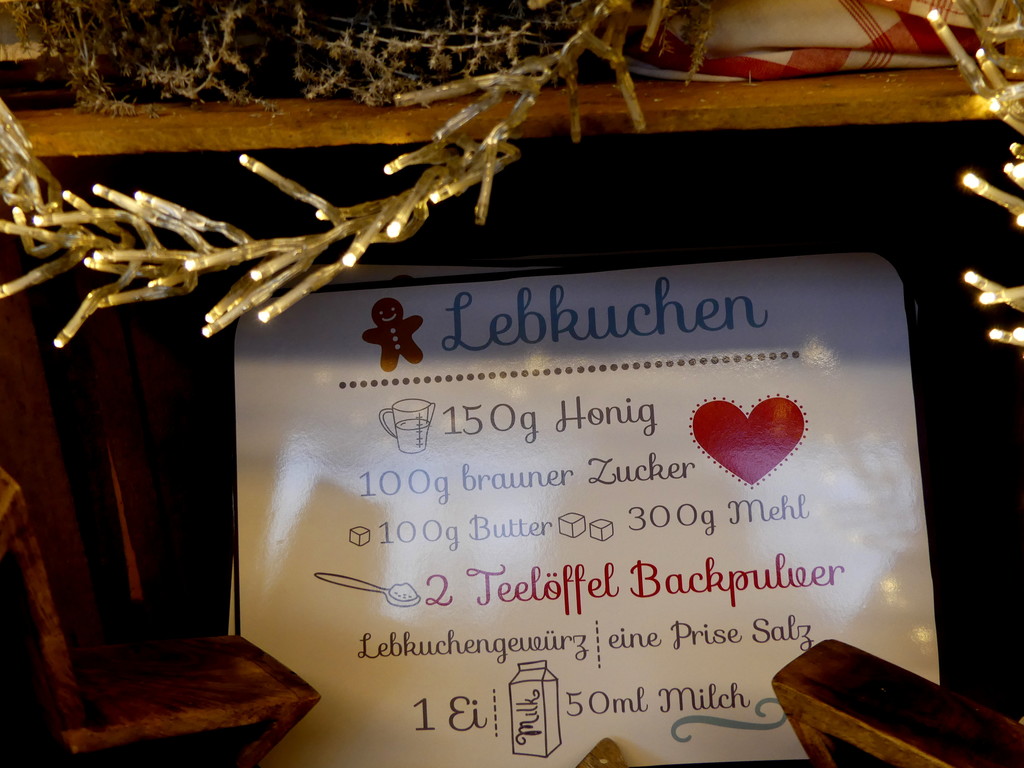 Lebkuchen
150g Honig
100g brauner Zucker
100g Butter 300g Mehl
2 Teelöffel Backpulver
Lebkuchengewürz eine Prise Salz
1 Ei Milk 50ml Milch